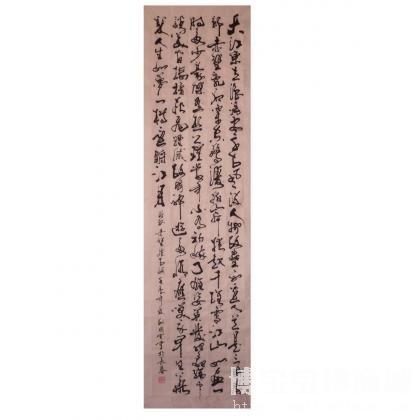 大江東去浪淘尽千古風流人物故壘西邊人道是三國周
郎赤壁乱石穿空驚濤拍岸捲起千堆雪江山如畫一
時多少豪傑遥想公瑾當年小喬初嫁了雄姿英發羽扇綸
巾談笑間檣櫓灰飛烟滅故國神遊多情應笑我早生華
髮人生如夢一樽還酹江月
赤壁懷古
於長春
http